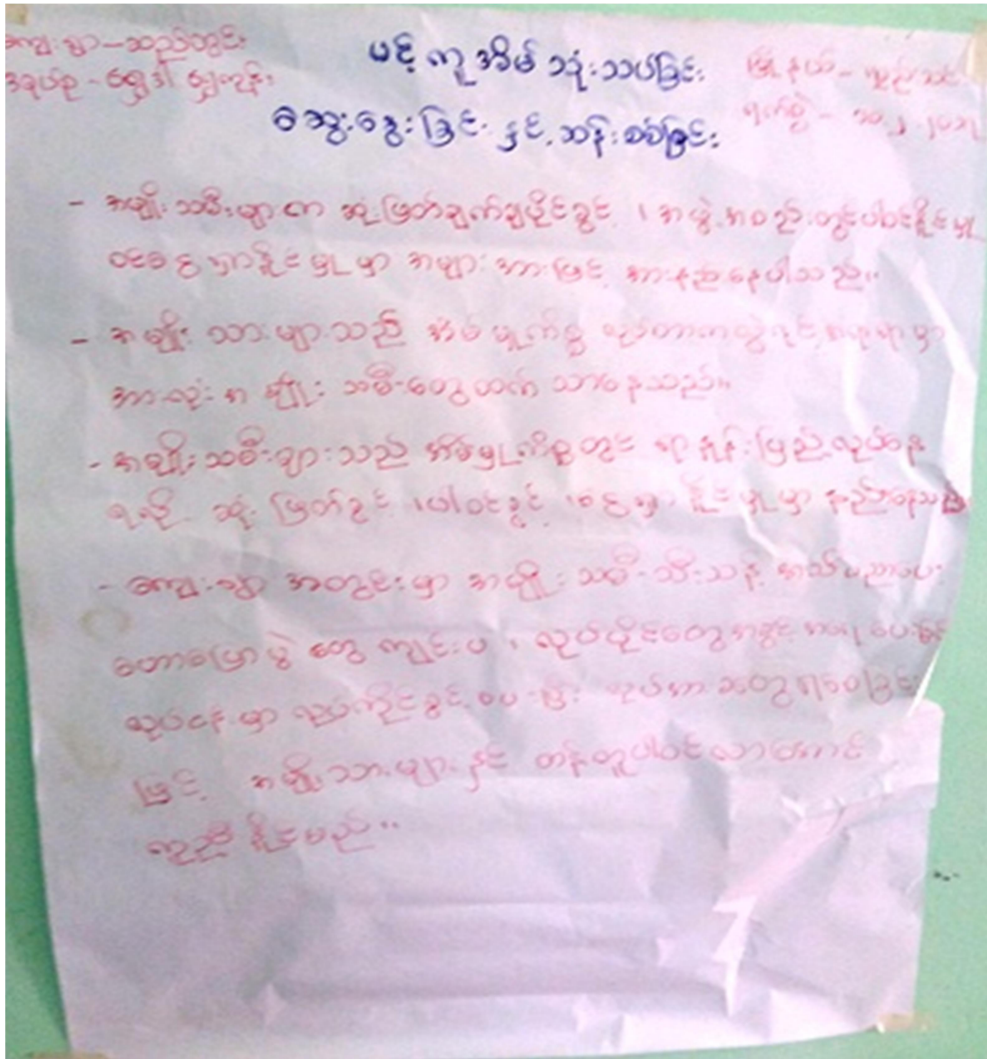 ကျေးရွာ - ဆည်တွင်း
အုပ်စု - ရွှေဒါး
ပင့်ကူအိမ်သုံးသပ်ခြင်း
မြို့နယ် -
ရက်စွဲ -
ဆွေးနွေးခြင်းနှင့်ဆန်းစစ်ခြင်း
- အမျိုးသမီးများက ဆုံးဖြတ်ချက်ချပိုင်ခွင့်၊ အဖွဲ့အစည်းတွင်ပါဝင်နိုင်မှု
ဝင်ငွေရှာနိုင်မှုမှာ အများအားဖြင့် အားနည်းနေပါသည်။
- အမျိုးသားများသည် အိမ်မှုကိစ္စ
အားလုံး အမျိုးသမီးတွေထက် သာနေသည်။
- အမျိုးသမီးများသည် အိမ်မှုကိစ္စတွင် ရာနှုန်းပြည့်လုပ်နေ
ရလို့ ဆုံးဖြတ်ခွင့်၊ ပါဝင်ခွင့်၊ ငွေရှာနိုင်မှုမှာ နည်းနေသည်
- ကျေးရွာအတွင်းမှာ အမျိုးသမီးသီးသန့် အသိပညာပေး
ဟောပြောပွဲတွေကျင်းပ၊ လုပ်ပိုင်ခွင့်
လုပ်ငန်းမှာ လုပ်ကိုင်ခွင့်ပေးပြီး လုပ်အားခတွေရစေခြင်း
ဖြင့် အမျိုးသားများနှင့် တန်းတူပါဝင်လာအောင်
ကူညီနိုင်မည်။